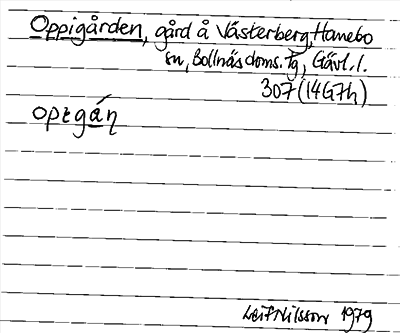 Oppigården, gård å Västerberg, Hanebo
sn, Bollnäs doms. tg, Gävl. l.
307 (14G7h)
opεgáη
Leif Nilsson 1979